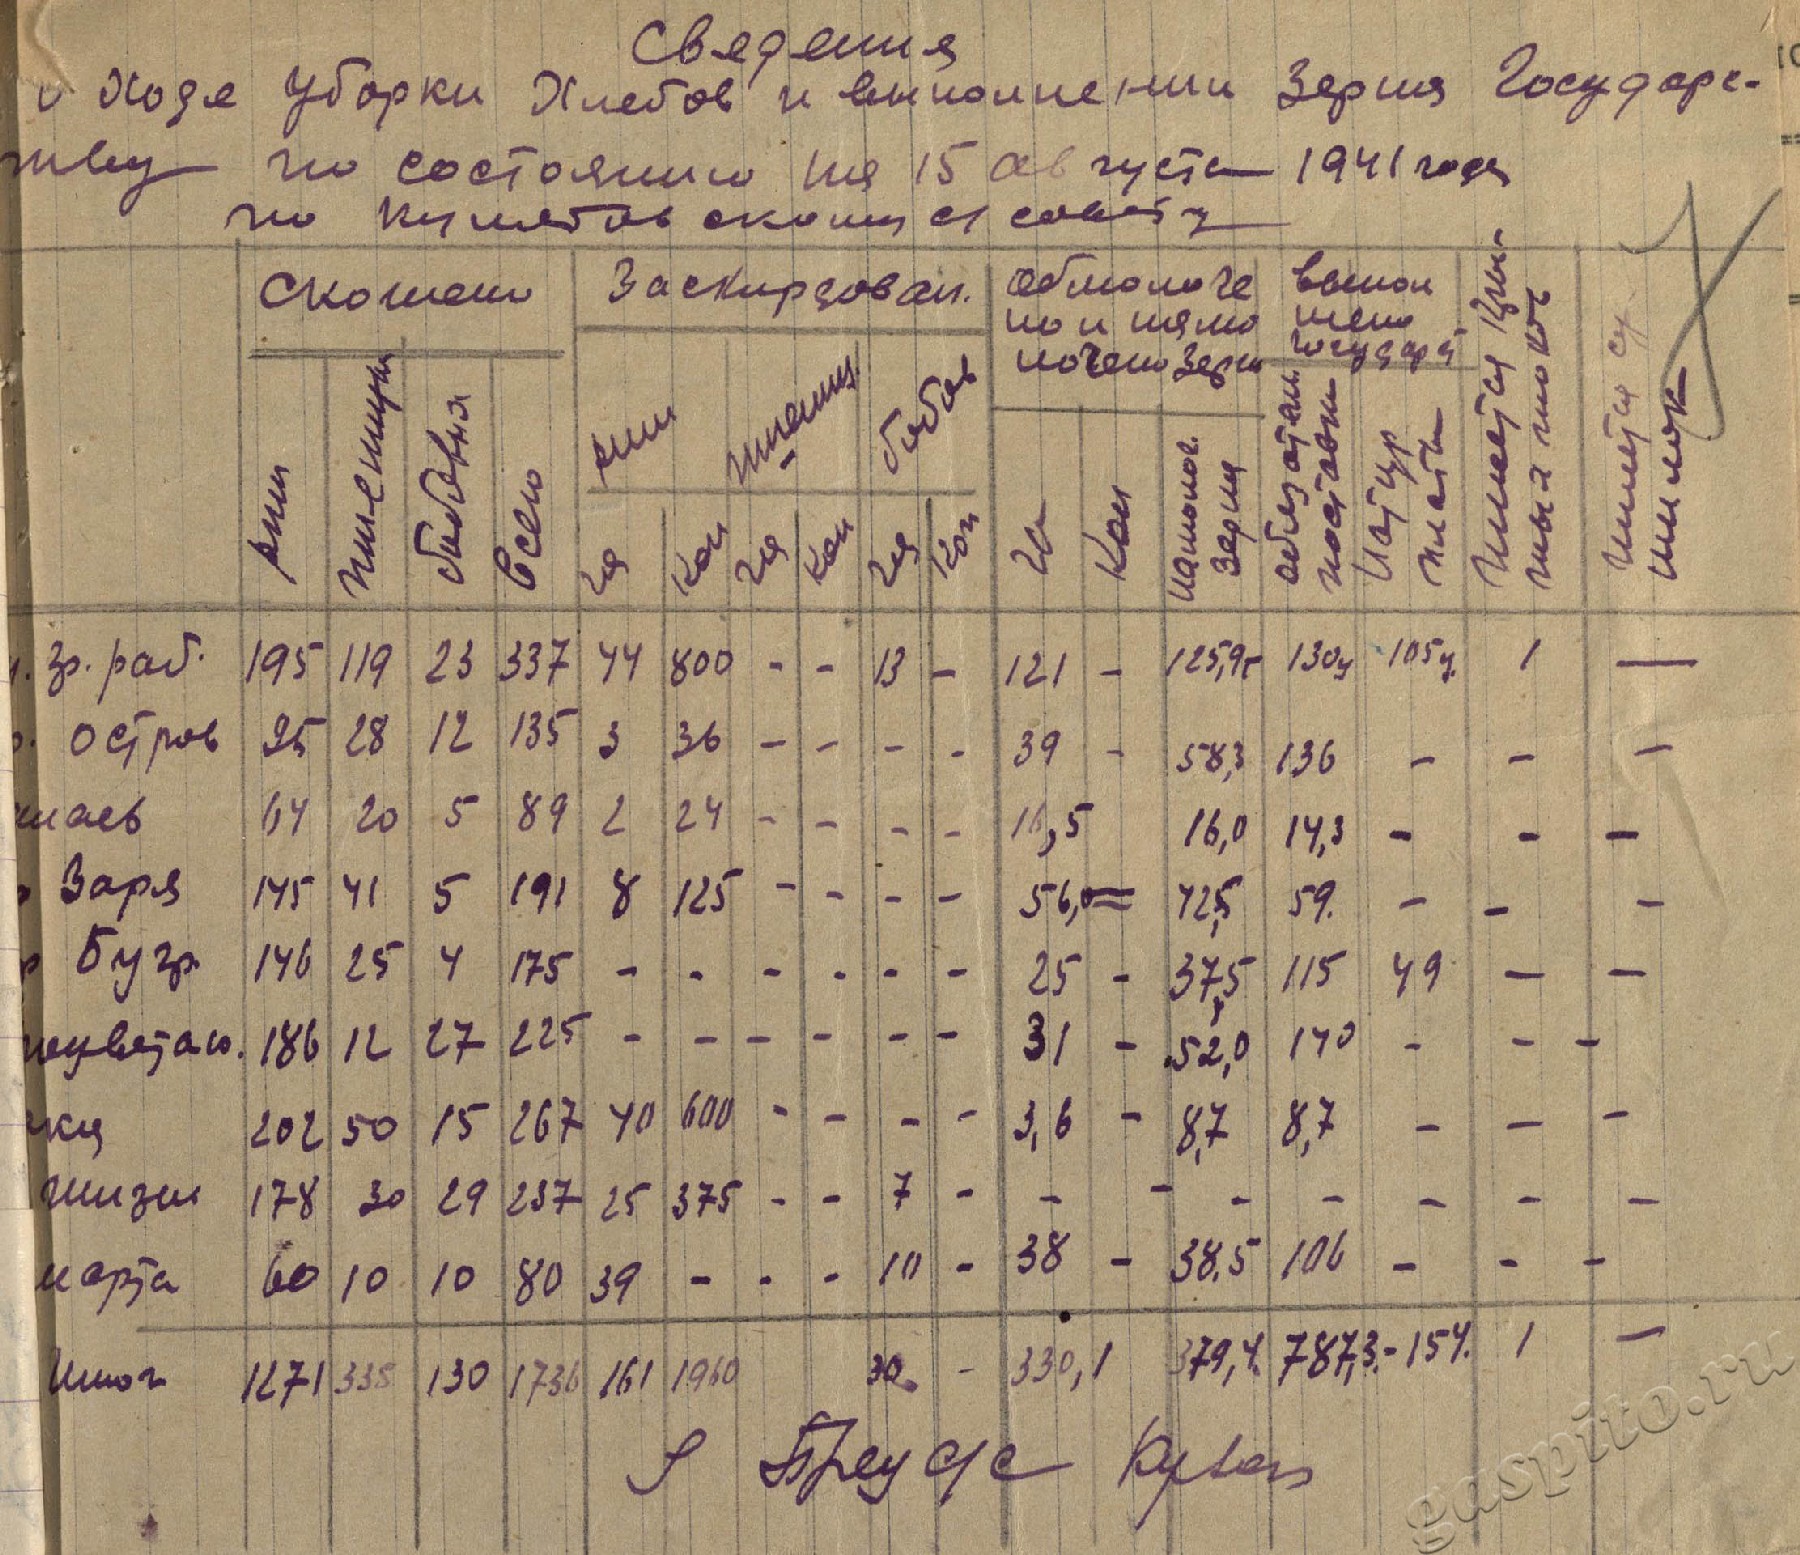 Сведения
о ходе уборки хлебов и выполнении зерна государс-
тву по состоянию на 15 августа 1941 года
по сельсовету
Скошено Заскирдован. обмолоче но и намо лочено зерна выпол нено государ
ржи пшеницы бобовых всего ржи пшениц. бобов
га коп га коп га коп га коп намолоч. зерна обязательн. поставки натур плата
Имеется Имеется
Кр. раб. 195 119 23 337 44 800 - - 13 - 121 - 125,9ц 130ц 105ц. 1 —
остров 95 28 12 135 3 36 - - - - 39 - 58,3 136 - - -
64 20 5 89 2 24 - - - - 16,5 16,0 14,3 - - -
Заря 145 41 5 191 8 125 - - - - 56,0 = 42,5 59. - - -
Бугр 146 25 4 175 - - - - - - 25 - 37,5 115 49 - -
186 12 27 225 - - - - - - 31 - 52,0 140 - - -
202 50 15 267 40 600 - - - - 3,6 - 8,7 8,7 - - -
жизни 178 30 29 237 25 375 - - 7 - - - - - - - -
марта 60 10 10 80 39 - - - 10 - 38 - 38,5 106 - - -
Итог 1271 335 130 1736 161 1960 30 - 330,1 379,4. 787,3.- 154. 1 —
gaspito.ru